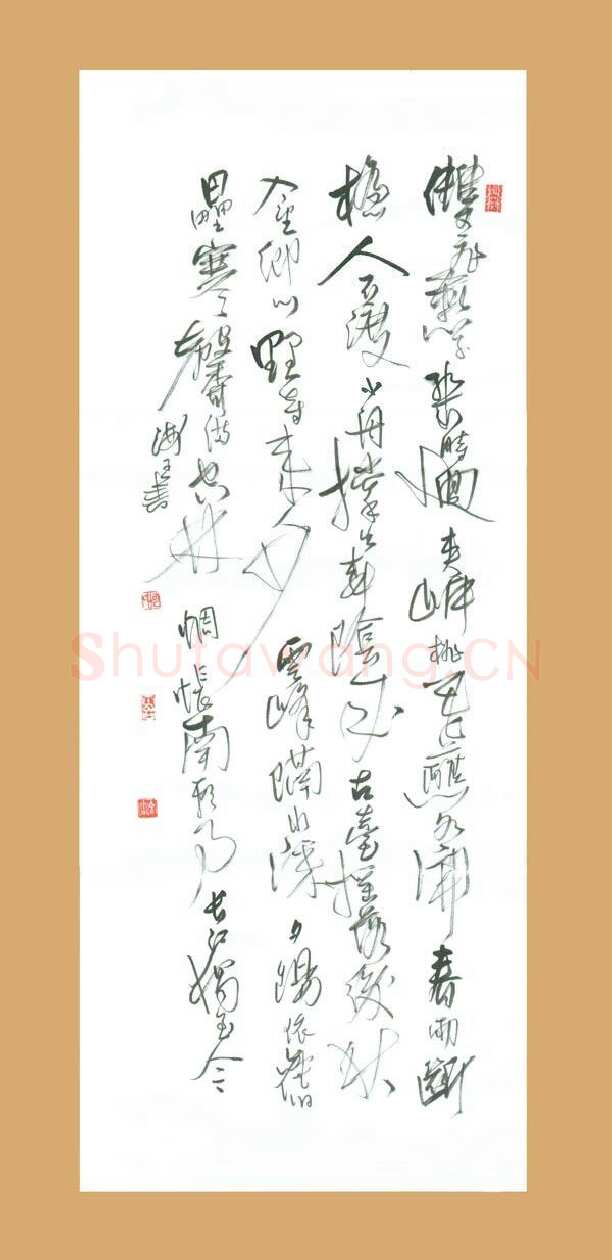 雙飛燕子幾時回夾岸桃花蘸水開春雨斷
橋人不渡小舟撐出柳陰來古臺搖落後秋
入望鄉心野寺來人少雲峰隔水深夕陽依舊
壘寒磬滿空林惆悵南朝事長江獨至今
書
Shufawang.CN